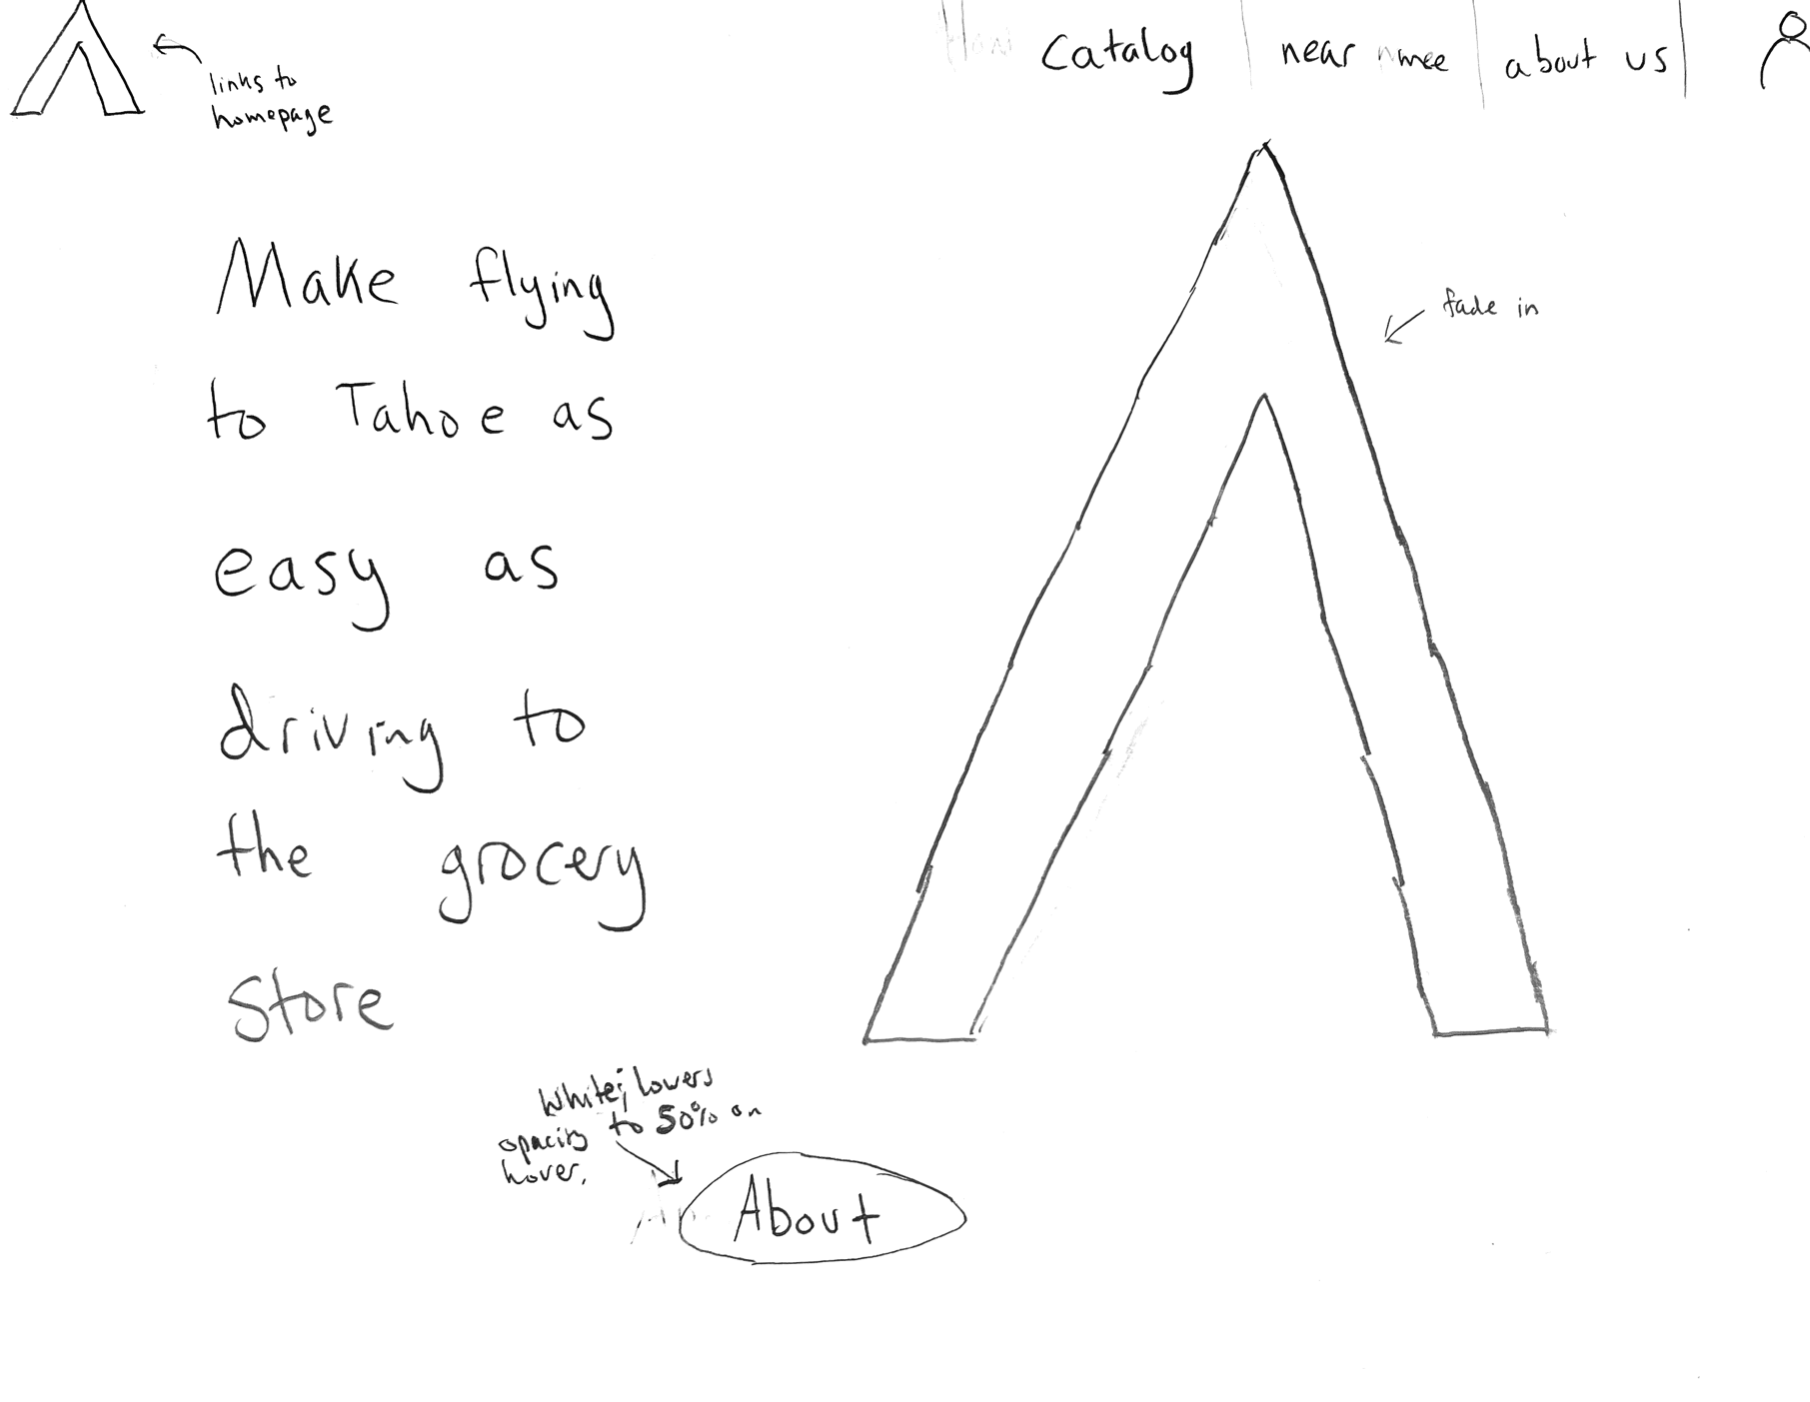 links to
homepage
Catalog near mee about us
Make flying
to Tahoe as
fade in
easy as
driving to
the grocery
Store
White; lowers
opacity to 50% on
hover.
About